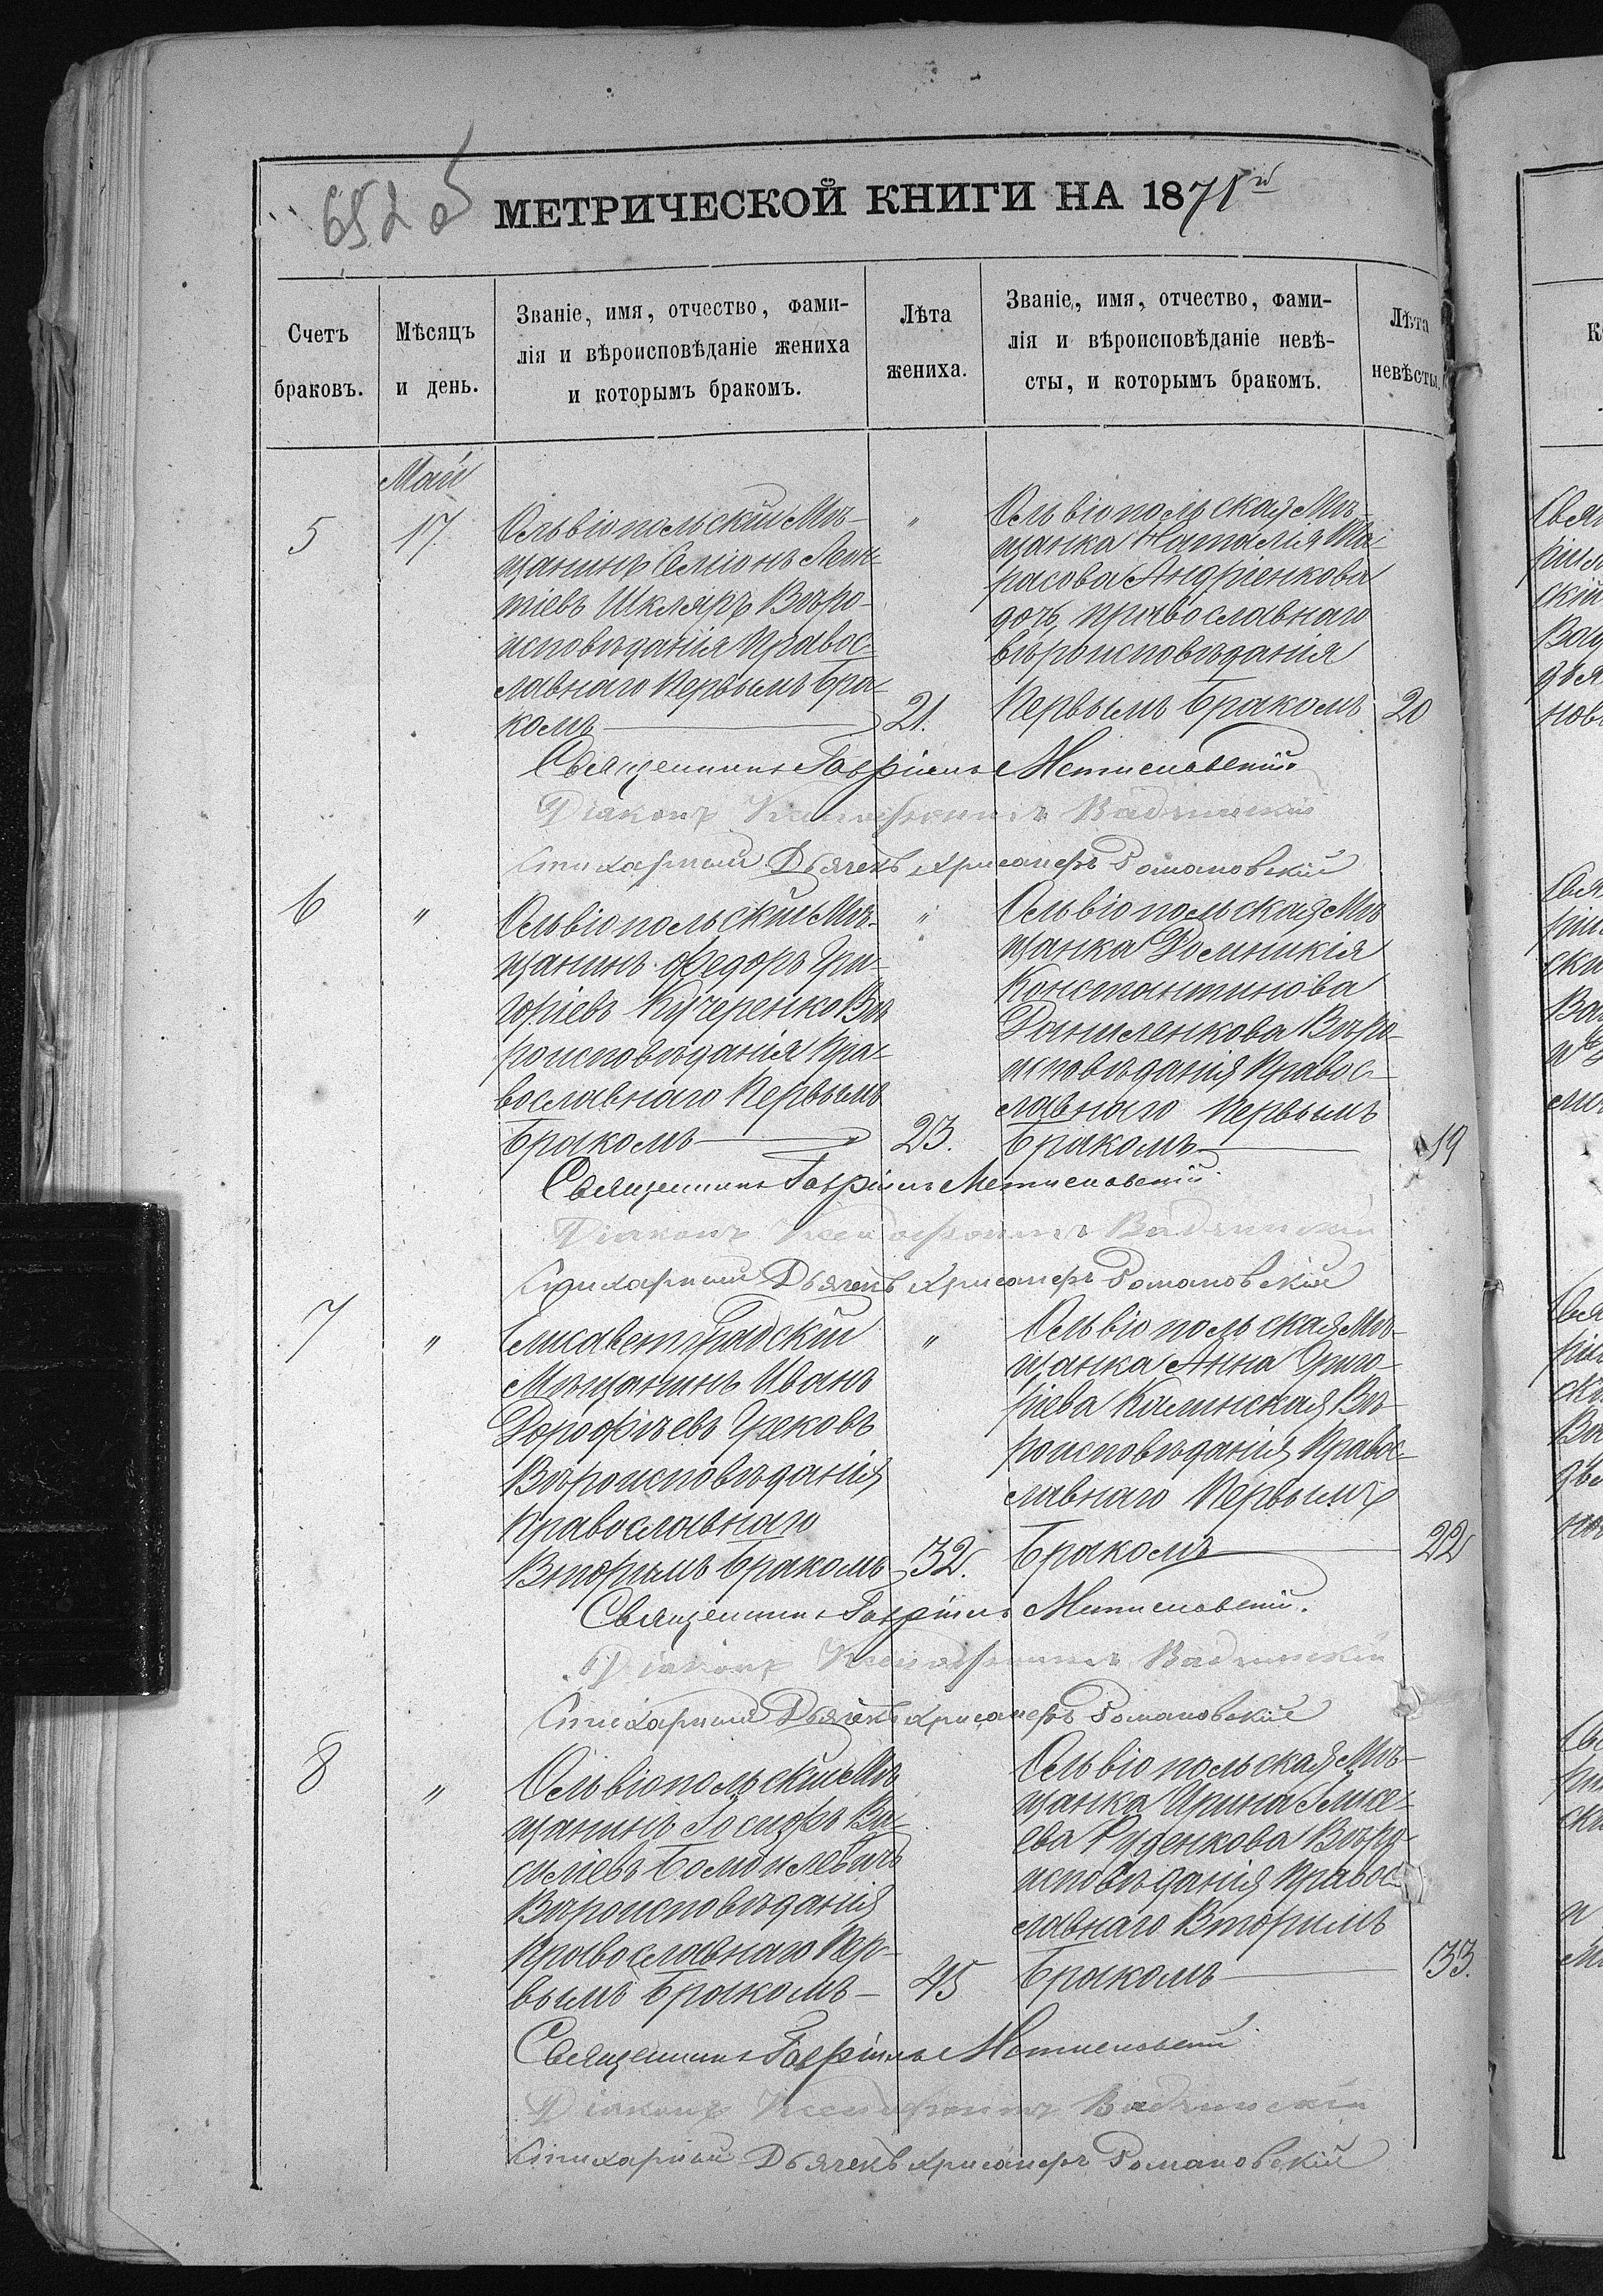 652 об
МЕТРИЧЕСКОЙ КНИГИ НА 1871й
Счетъ браковъ.
Мѣсяцъ и день.
Званіе, имя, отчество, фами-
лія и вѣроисповѣданіе жениха
и которымъ бракомъ.
Лѣта жениха.
Званіе, имя, отчество, фами-
лія и вѣроисповѣданіе невѣ-
сты, и которымъ бракомъ.
Лѣта невѣсты.
Май
5
17
Ольвіопольскій Мѣ-
щанинъ Семіонъ Леон-
тіевъ Шкляръ Вѣро-
исповѣданія Правос-
лавнаго Первымъ бра-
комъ
21.
"
Ольвіопольская Мѣ-
щанка Наталія Та-
расова Андріенкова
дочь, православнаго
вѣроисповѣданія
Первымъ бракомъ
20
Священникъ Гавріилъ Мстиславскій
Діаконъ Вадзинскій
Стихарный Дьячекъ Хрисанфъ Романовскій
6
"
Ольвіопольскій Мѣ-
щанинъ Федоръ Гри-
горіевъ Кучеренко Вѣ
роисповѣданія Пра-
вославнаго Первымъ
бракомъ
23.
"
Ольвіопольская Мѣ
щанка Домникія
Константинова
Даниленкова Вѣро-
исповѣданія Правос-
лавнаго Первымъ
бракомъ
19
Священникъ Гавріилъ Мстиславскій
Діаконъ Вадзинскій
Стихарный Дьячекъ Хрисанфъ Романовскій
7
"
Елисаветградскій
Мѣщанинъ Иванъ
Дорофѣевъ Грековъ
Вѣроисповѣданія
Православнаго
Вторымъ бракомъ
32.
"
Ольвіопольская Мѣ-
щанка Анна Григо-
ріева Калинская Вѣ-
роисповѣданія Правос-
лавнаго Первымъ
бракомъ
22
Священникъ Гавріилъ Мстиславскій.
Діаконъ Вадзинскій
Стихарный Дьячекъ Хрисанфъ Романовскій
8
"
Ольвіопольскій Мѣ
щанинъ Іосифъ Ва-
силіевъ
Вѣроисповѣданія
Православнаго Пер-
вымъ бракомъ
45
Ольвіопольская Мѣ-
щанка Ирина
ева Руденкова Вѣро-
исповѣданія Правос-
лавнаго Вторымъ
бракомъ
33.
Священникъ Гавріилъ Мстиславскій
Діаконъ Вадзинскій
Стихарный Дьячекъ Хрисанфъ Романовскій